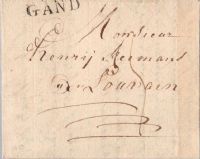 GAND
Monsieur
Henrij Hermans
de Louvain